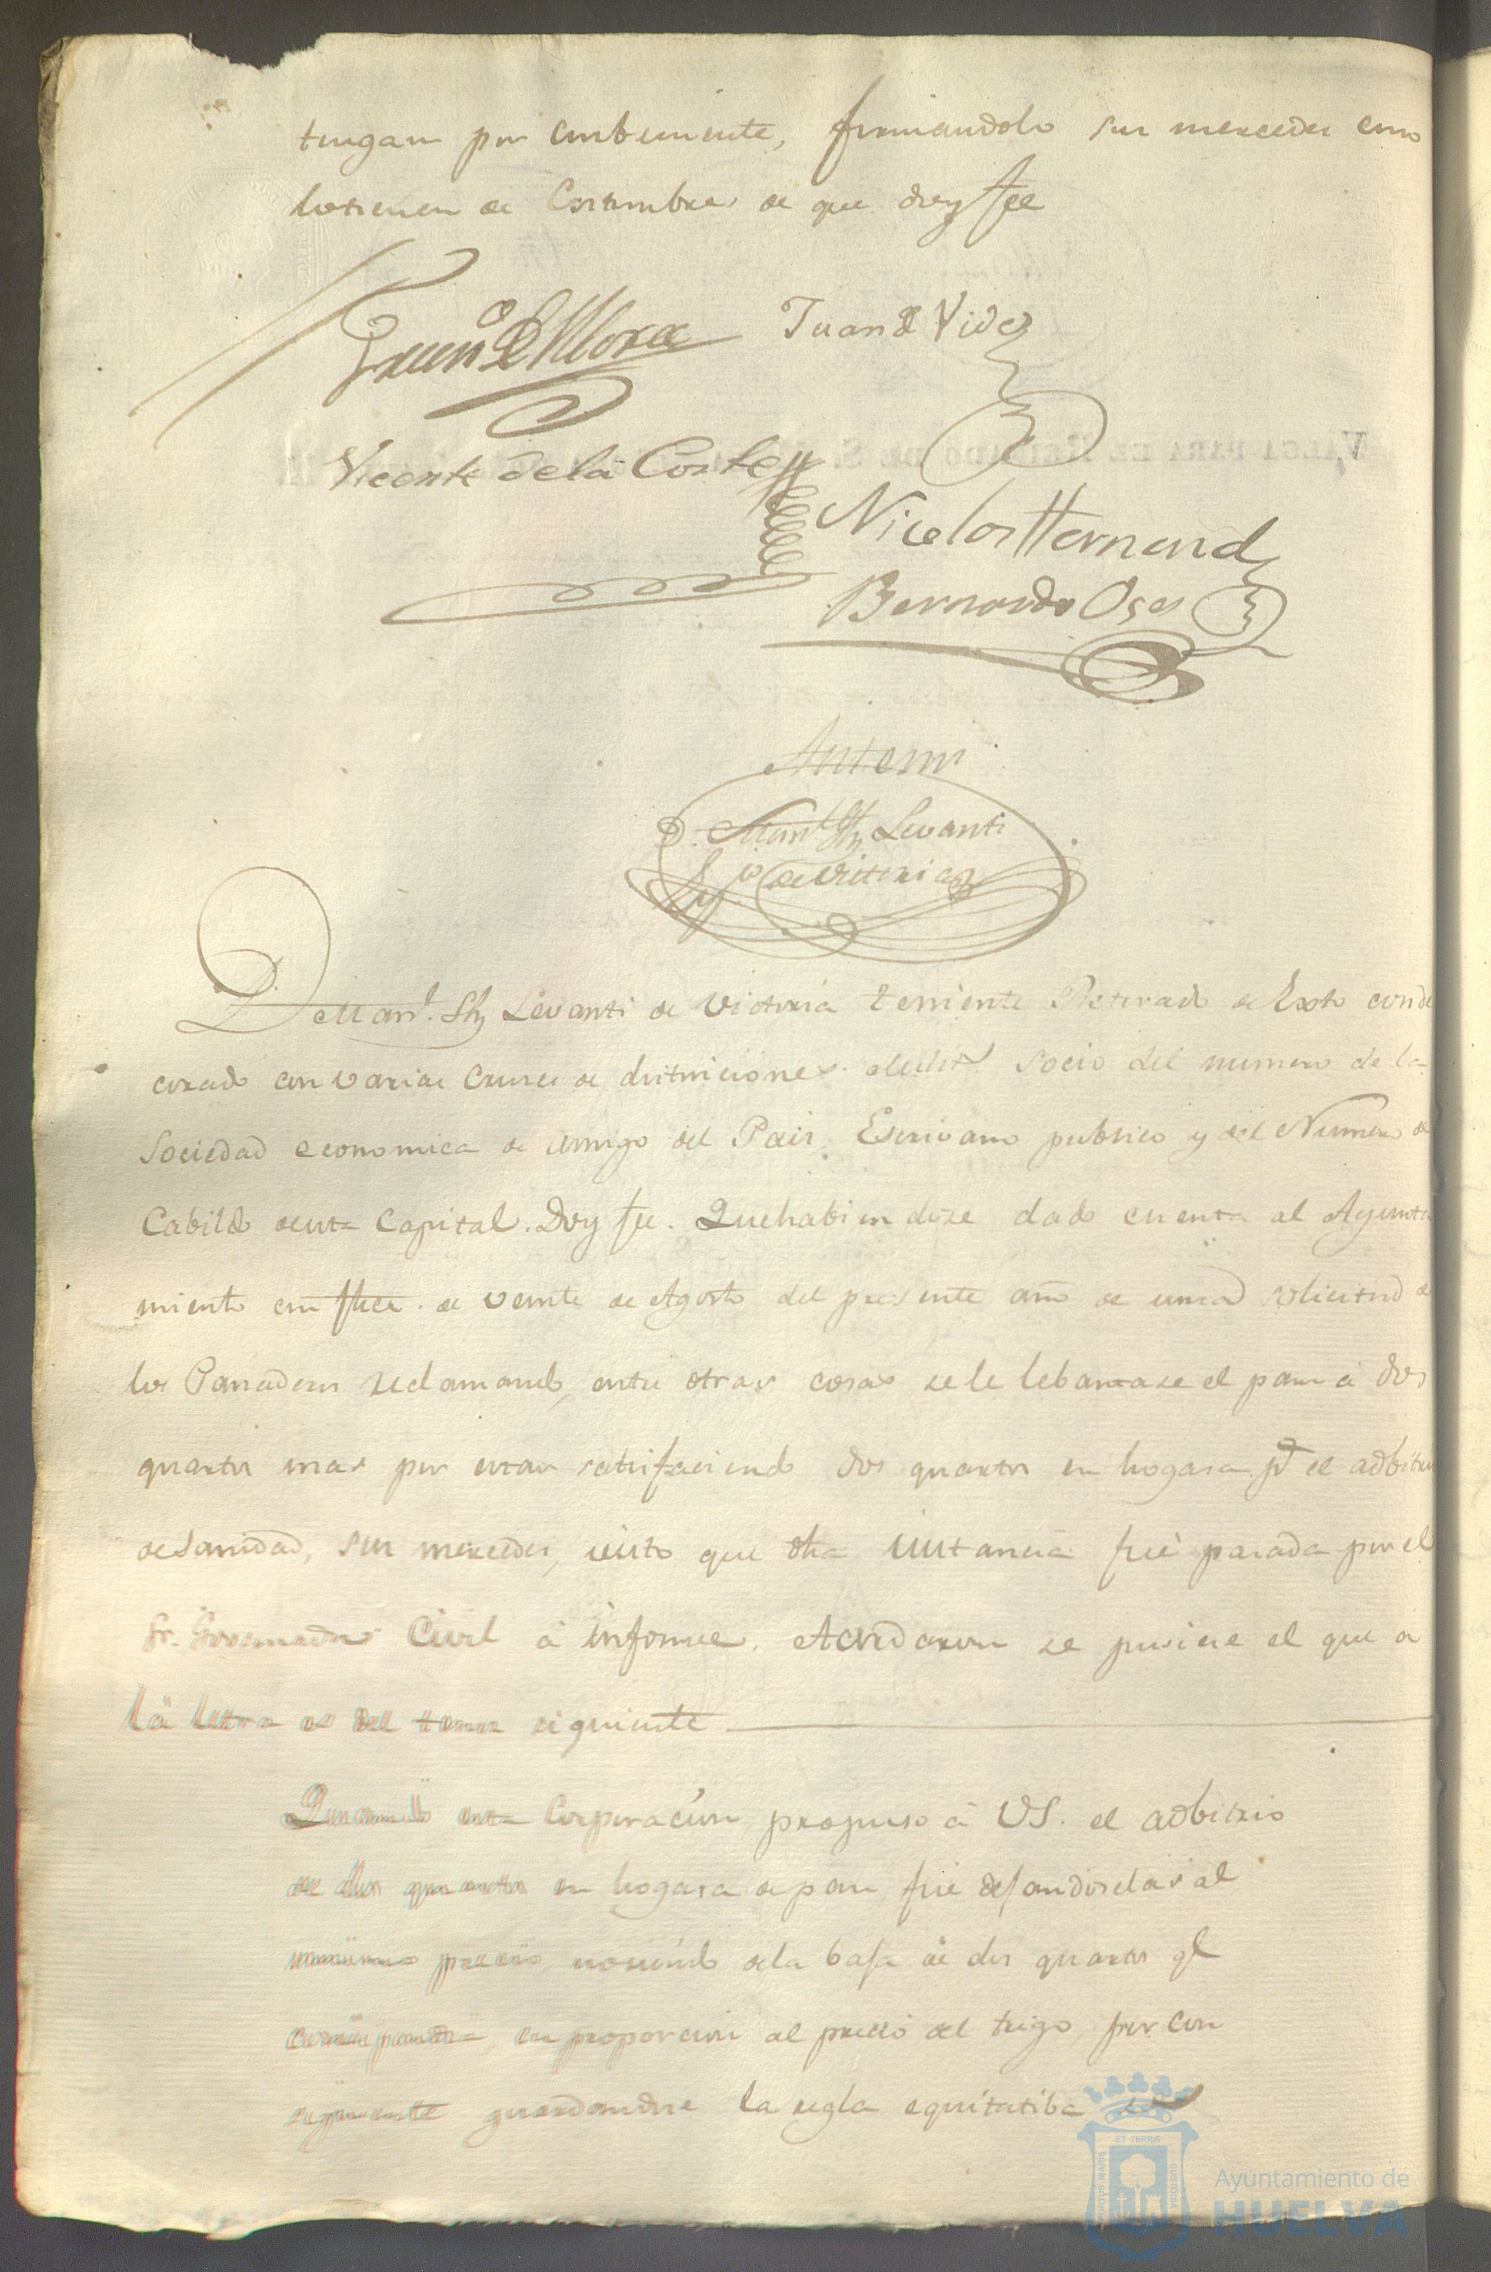 tengan por combeniente, firmandolo sus mercedes como
lo tienen de Costumbre de que doy fee
Juan de Mora
Juan de Vides
Vicente de la Corte
Nicolas Hernand
Bernardo Oses
Antemi
D. Man.l Levanti
de Victoria
D. Man.l Levanti de Victoria teniente Retirado de Exto conde
corado con varias Cruces de distinciones socio del numero de la
Sociedad economica de amigo del Pais, Escrivano publico y del Numero de
Cabildo de esta Capital. Doy fee. Que habiendose dado cuenta al Ayunta
miento en de veinte de Agosto del presente año de una solicitud de
los Panaderos reclamando, entre otras cosas se le lebantase el pan á dos
quartos mas por estar satisfaciendo dos quartos en hogasa pr. el adbitrio
de Sanidad, sus mercedes, visto que dha instancia fué pasada por el
Sr. Governador Civil á informe, Acordaron se pusiese el que á
la letra es del tenor siguiente
Quando esta Corporacion propuso á VS. el adbitrio
de dos quartos en hogasa de pan, fué dejandoselas al
mismo precio, no siendo de la baja de dos quartos qe
correspondia, en proporcion al precio del trigo, por con
siguiente guardandose la regla equitatiba
VALGA PARA EL REINADO DE S.
ET TERRÆ
PORTUS MARIS
CUSTODIA
Ayuntamiento de
HUELVA